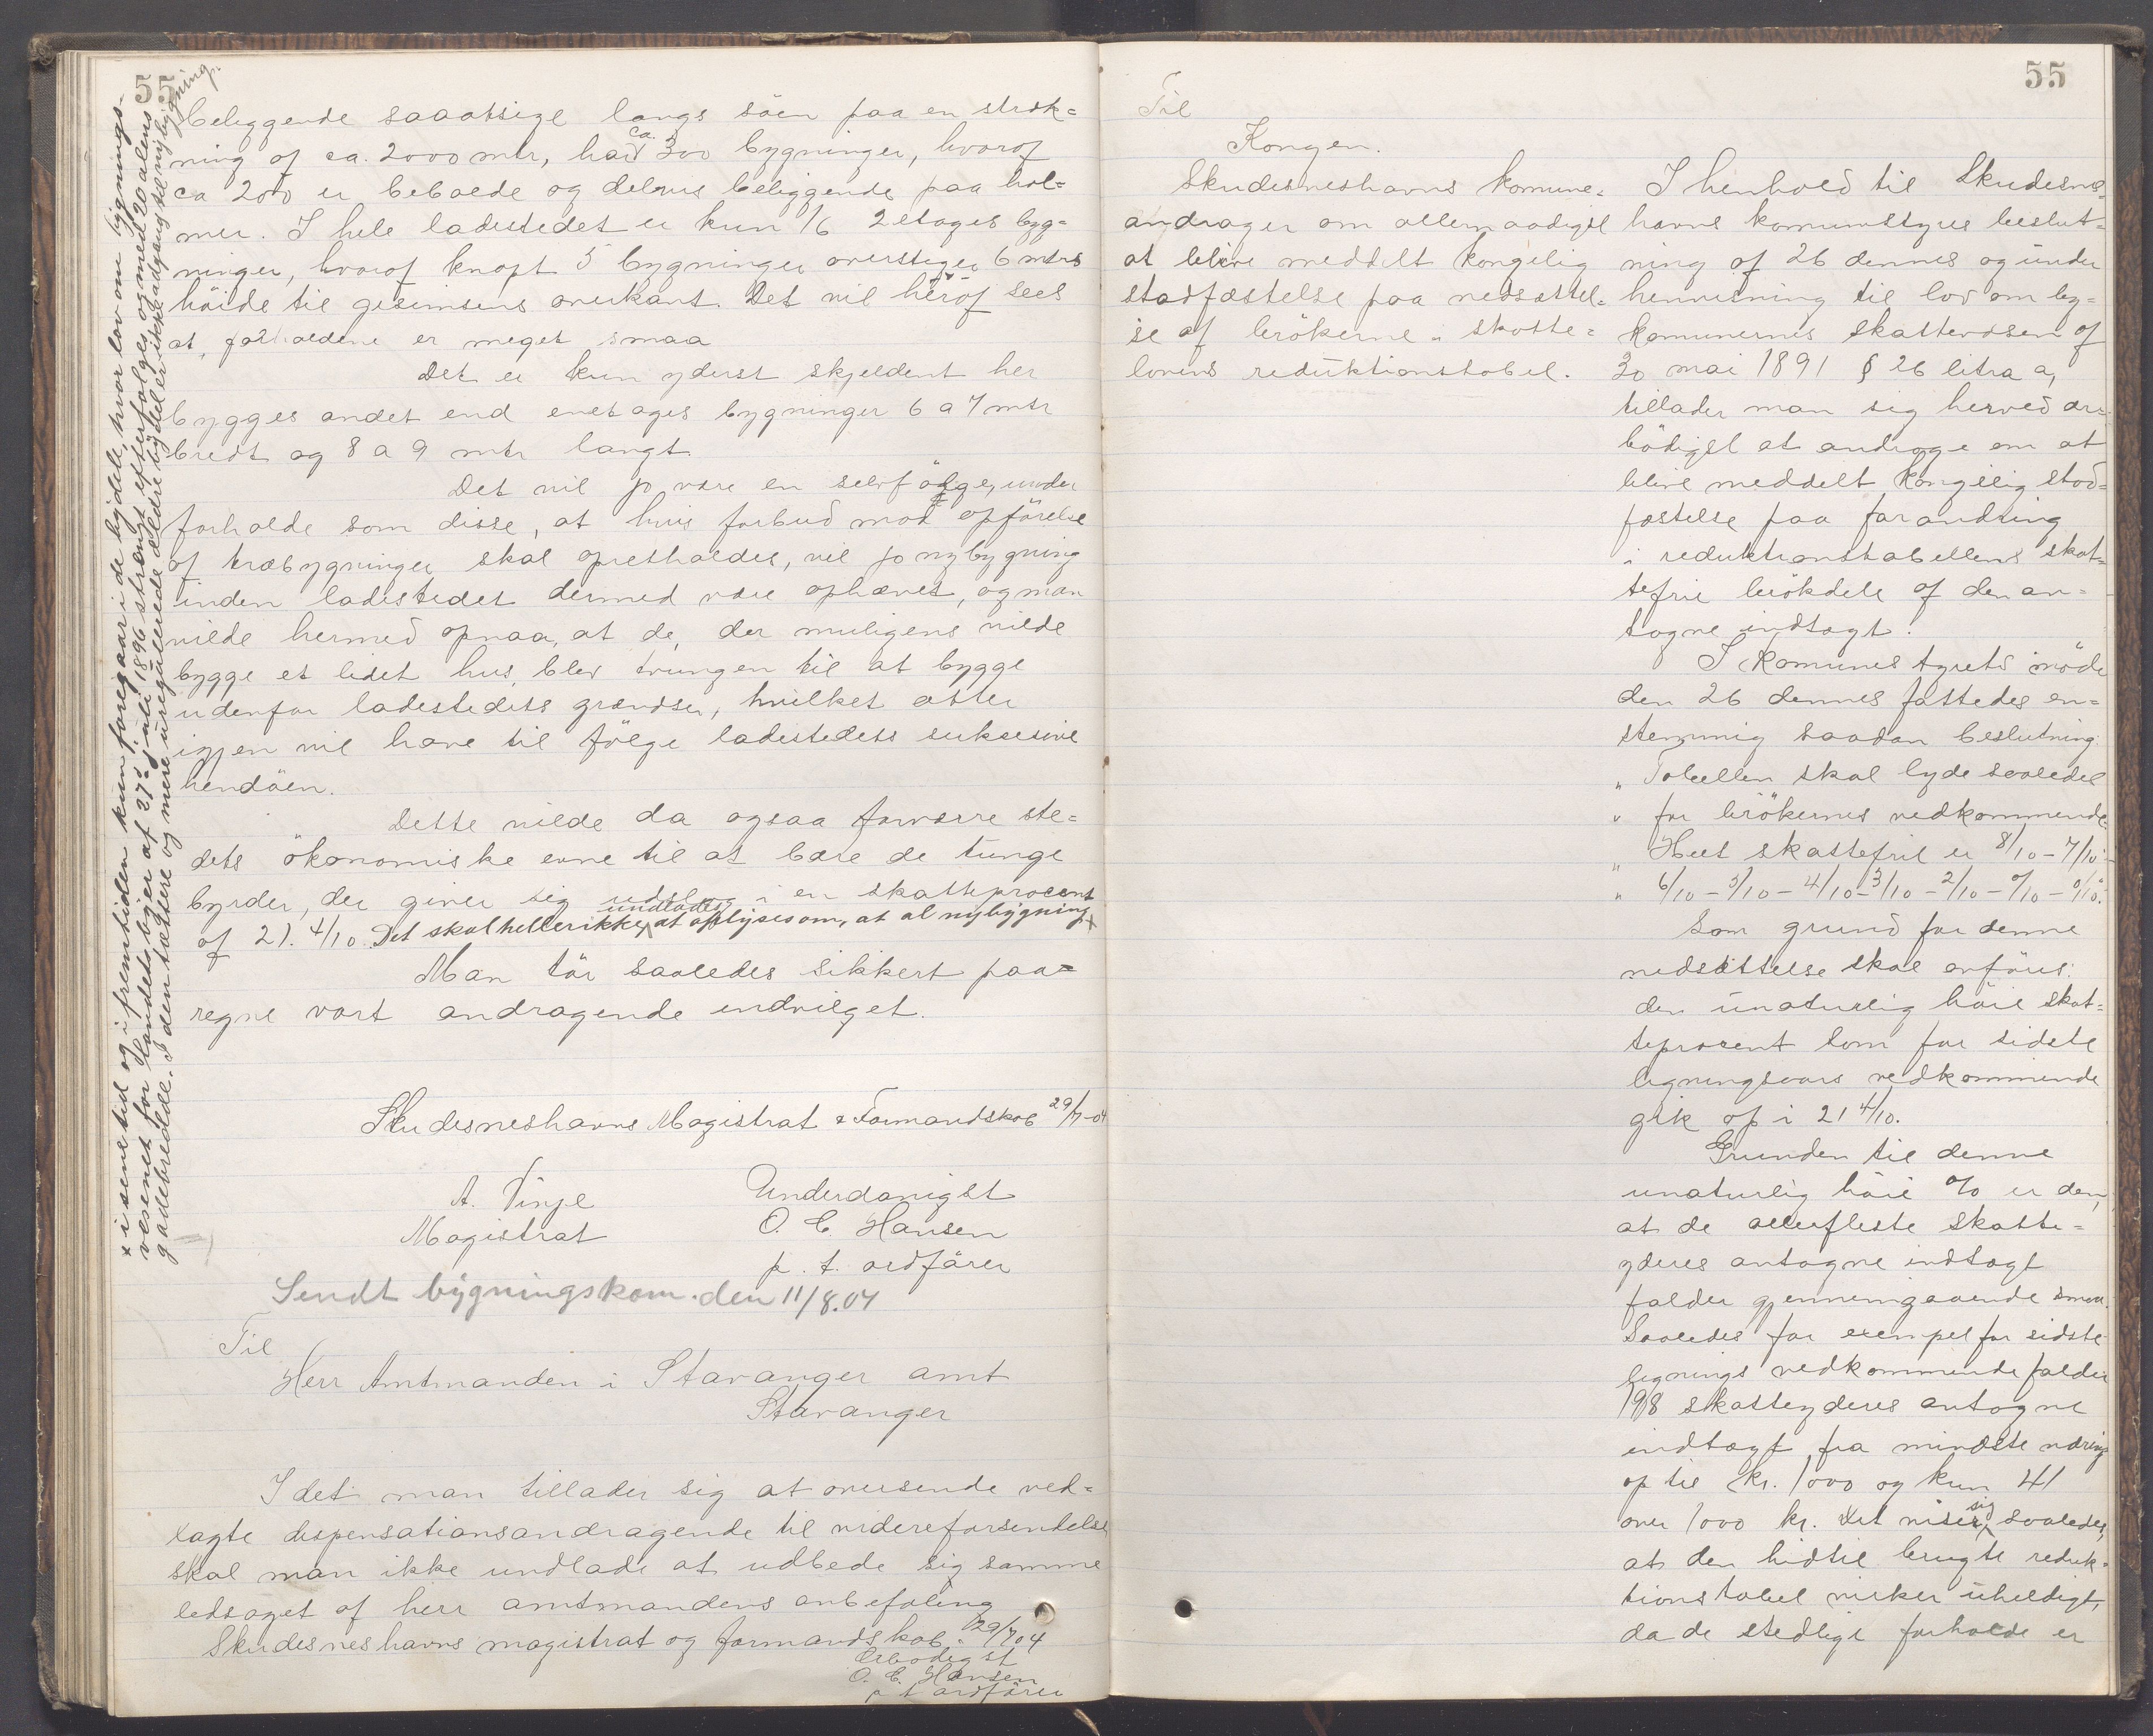 55
beliggende saaatsige langs söen paa en stræk=
ning af ca. 2000 mtr, har ca. 300 bygninger, hvoraf
ca 200 er beboede og delvis beliggende paa hol=
mer. I hele ladestedet er kun 16 2 etages byg=
ninger, hvoraf knapt 5 bygninger overstiger 6 mtrs
höide til gesimsens overkant. Det vil heraf sees
at forholdene er meget smaa
Det er kun yderst skjeldent her
bygges andet end enetages bygninger 6 a 7 mtr
bredt og 8 a 9 mtr langt.
Det vil jo være en selvfölge, under
forholde som disse, at hvis forbud mod opförelse
af træbygninger skal opretholdes, vil jo nybygning
inden ladestedet dermed være ophævet, og man
vilde hermed opnaa, at de, der muligens vilde
bygge et lidet hus, blev tvungen til at bygge
udenfor ladestedets grændser, hvilket atter
igjen vil have til fölge ladestedets suksesive
hendöen.
Dette vilde da ogsaa forværre ste=
dets ökonomiske evne til at bære de tunge
byrder, der giver sig udslag i en skatteprocent
af 21. 4/10. Det skal heller ikke undlades at oplyses om, at al nybygning x
Man tör saaledes sikkert paa=
regne vort andragende indvilget.
Skudesneshavns Magistrat & Formandskab 29/7-04
A. Vinje
Magistrat
Underdanigst
O. C. Hansen
p. t. ordförer
Sendt bygningskom. den 11/8.04
Til
Herr Amtmanden i Stavanger amt
Stavanger
I det man tillader sig at oversende ved=
lagte dispensationsandragende til videreforsendelse
skal man ikke undlade at udbede sig samme
ledsaget af herr amtmandens anbefaling
Skudesneshavns magistrat og formandskab. 29/7 04
Erbödigst
O. C. Hansen
p t ordförer
x i senere tid og i fremtiden kun foregaar i de bydele, hvor lov om bygnings-
væsenet for landets byer af 27de juli 1896 strængt efterfölges og med 20 alens
gadebredde. I den tættere og mere uregulerede ældre bydel er ikke adgang til nybygning.
55
Til
Kongen.
Skudesneshavns komune=
andrager om allernaadigst
at blive meddelt kongelig
stadfæstelse paa nedsættel=
se af brökerne i skatte=
lovens reduktionstabel.
I henhold til Skudesnes=
havns komunestyres beslut=
ning af 26 dennes og under
henvisning til lov om by=
komunernes skattevæsen af
30 mai 1891 § 26 litra a,
tillader man sig herved ær=
bödigst at andrage om at
blive meddelt kongelig stad=
fæstelse paa forandring
i reduktionstabellens skat=
tefrie brökdele af den an=
tagne indtægt.
I komunestyrets möde
den 26 dennes fattedes en=
stemmig saadan beslutning:
„ Tabellen skal lyde saaledes
„ for brökernes vedkommende:
„ Helt skattefrit er 8/10 - 7/10 -
„ 6/10 - 5/10 - 4/10 - 3/10 - 2/10 - 0/10 - 0/10.
Som grund for denne
nedsættelse skal anföres:
den unaturlig höie skat=
teprosent som for sidste
ligningsaars vedkommende
gik op i 21 4/10.
Grunden til denne
unaturlig höie % er den,
at de allerfleste skatte=
yderes antagne indtægt
falder gjennemgaaende smaa.
Saaledes for exempel for sidste
lignings vedkommende falder
198 skatteyderes antagne
indtægt fra mindste næring
op til kr. 1000 og kun 41
over 1000 kr. Det viser sig saaledes,
at den hidtil brugte reduk=
tionstabel virker uheldigt,
da de stedlige forholde er